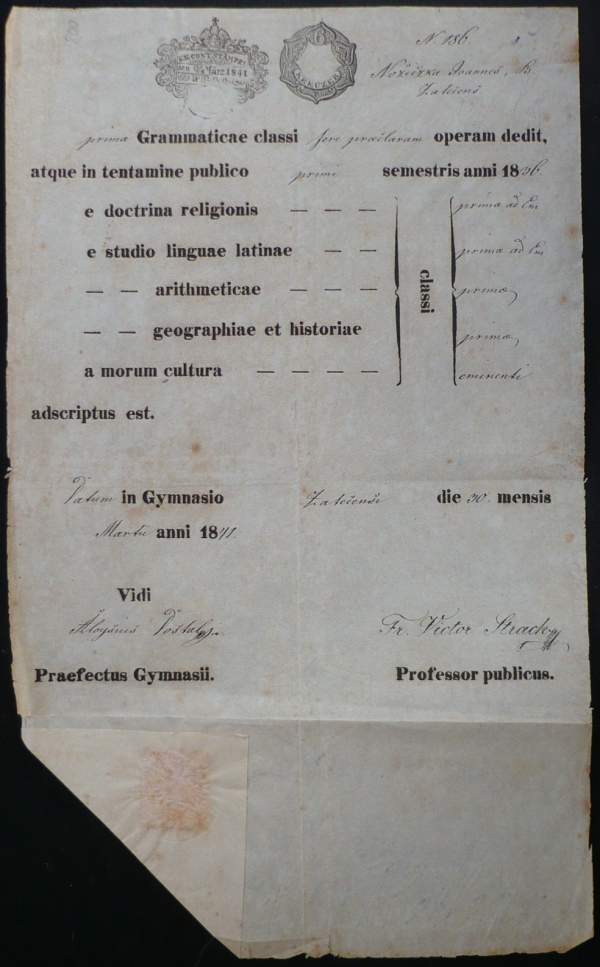 N. 186.
Nožiczka Joannes, B.
Zatecens
den 6 März 1841
6
KREUZER
primae Grammaticae classi fere praeclaram operam dedit,
atque in tentamine publico primi semestris anni 1836
e doctrina religionis — — — primae ad Em
e studio linguae latinae — — primae ad Em
— — arithmeticae — — — primae
— — geographiae et historiae primae
a morum cultura — — — — eminenti
classi
adscriptus est.
Datum in Gymnasio Zatecensi die 30 mensis
Martii anni 1841.
Vidi
Aloysius Fr. Victor Strach
Praefectus Gymnasii. Professor publicus.